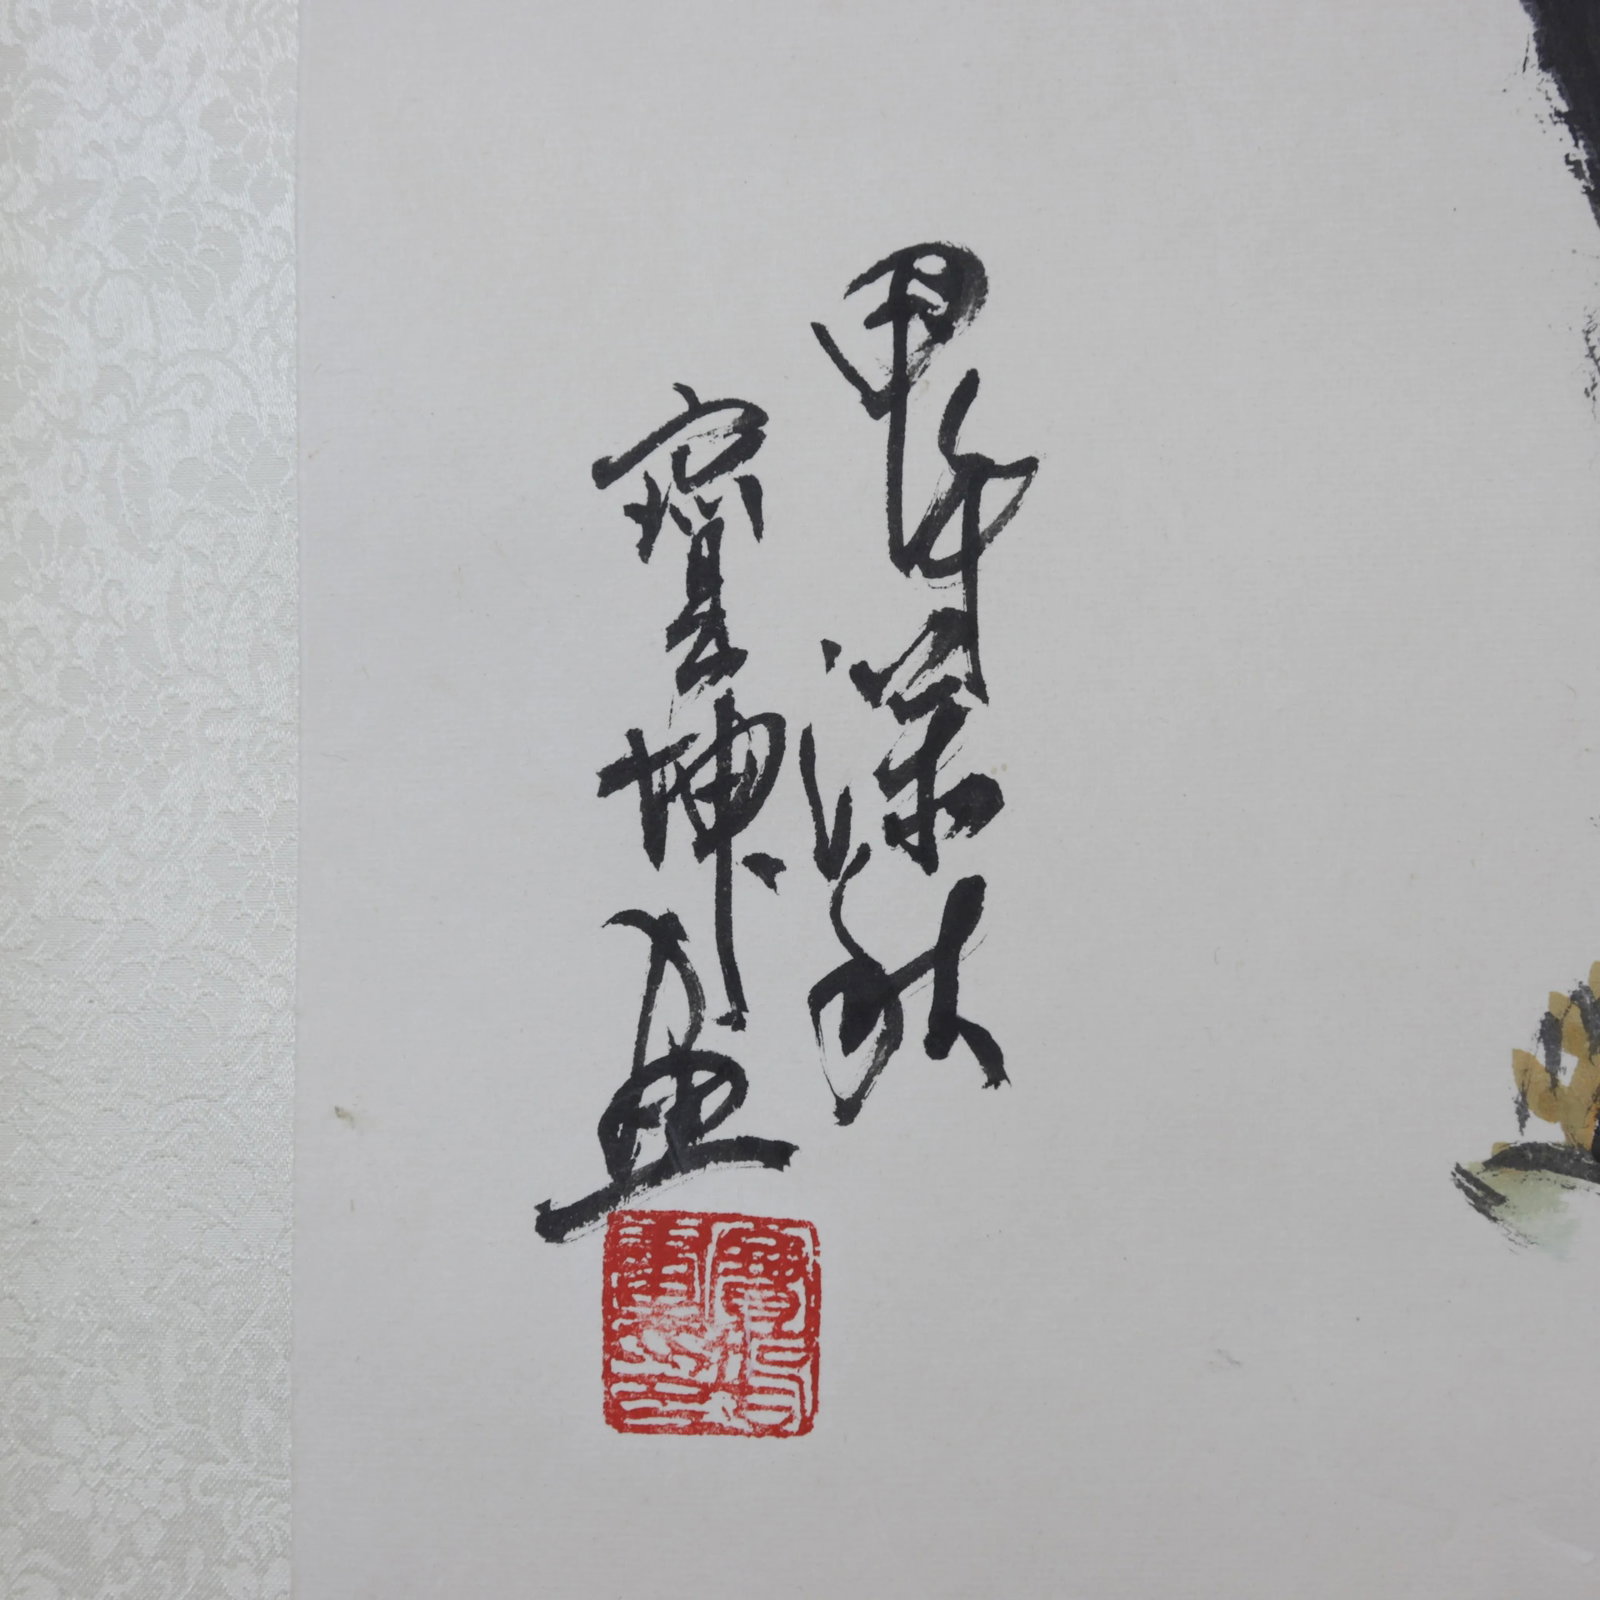 甲午深秋
寶坤畫